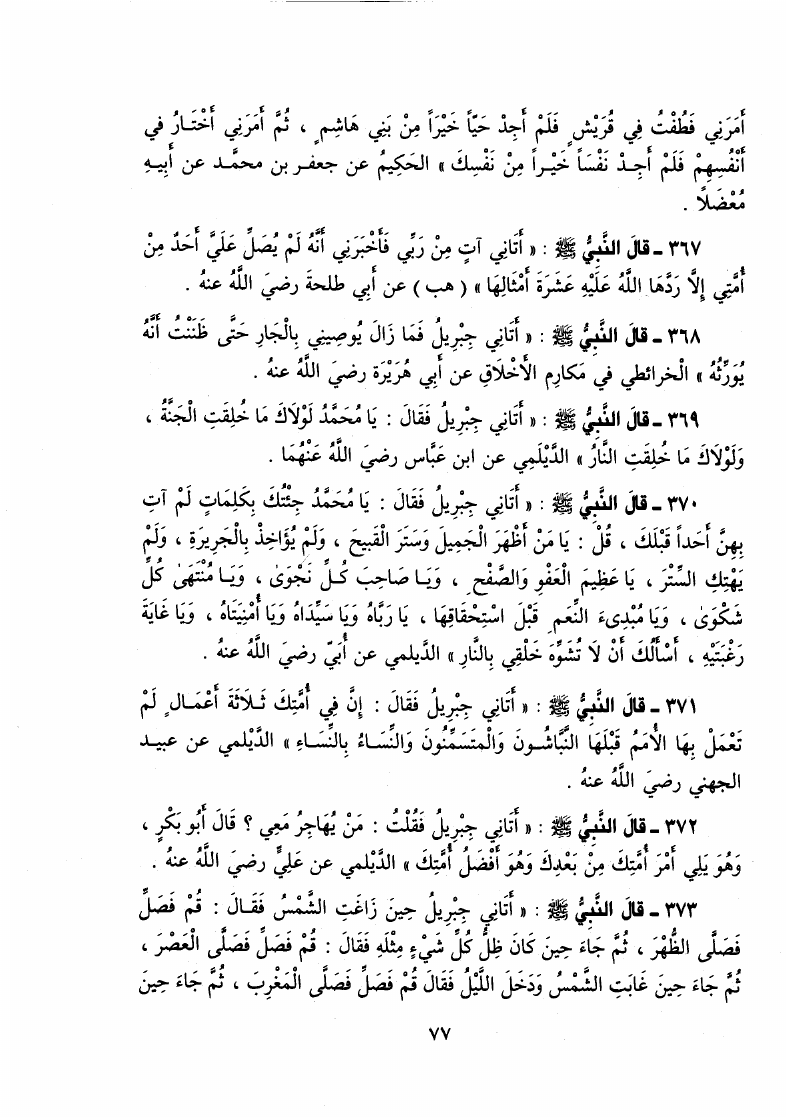 أَمَرَنِي فَطُفْتُ فِي قُرَيْشٍ فَلَمْ أَجِدْ حَيّاً خَيْراً مِنْ بَنِي هَاشِمٍ ، ثُمَّ أَمَرَنِي أَخْتَارُ فِي
أَنْفُسِهِمْ فَلَمْ أَجِدْ نَفْسَاً خَيْراً مِنْ نَفْسِكَ » الحَكِيمُ عن جعفر بن محمَّد عن أَبِيهِ
مُعْضَلاً .
٣٦٧ ـ قالَ النَّبِيُّ ﷺ : « أَتَانِي آتٍ مِنْ رَبِّي فَأَخْبَرَنِي أَنَّهُ لَمْ يُصَلِّ عَلَيَّ أَحَدٌ مِنْ
أُمَّتِي إِلاَّ رَدَّهَا اللَّهُ عَلَيْهِ عَشْرَةَ أَمْثَالِهَا » ( هب ) عن أَبِي طلحةَ رضيَ اللَّهُ عنهُ .
٣٦٨ ـ قالَ النَّبِيُّ ﷺ : « أَتَانِي جِبْرِيلُ فَمَا زَالَ يُوصِينِي بِالْجَارِ حَتَّى ظَنَنْتُ أَنَّهُ
يُوَرِّثُهُ » الْخرائطي في مكارِمِ الأَخْلَاقِ عن أَبِي هُرَيْرَة رضيَ اللَّهُ عنهُ .
٣٦٩ ـ قالَ النَّبِيُّ ﷺ : « أَتَانِي جِبْرِيلُ فَقَالَ : يَا مُحَمَّدُ لَوْلاَكَ مَا خُلِقَتِ الْجَنَّةُ ،
وَلَوْلاَكَ مَا خُلِقَتِ النَّارُ » الدَّيْلَمِي عن ابن عَبَّاس رضيَ اللَّهُ عَنْهُمَا .
٣٧٠ ـ قالَ النَّبِيُّ ﷺ : « أَتَانِي جِبْرِيلُ فَقَالَ : يَا مُحَمَّدُ جِئْتُكَ بِكَلِمَاتٍ لَمْ آتِ
بِهِنَّ أَحَداً قَبْلَكَ ، قُلْ : يَا مَنْ أَظْهَرَ الْجَمِيلَ وَسَتَرَ الْقَبِيحَ ، وَلَمْ يُؤَاخِذْ بِالْجَرِيرَةِ ، وَلَمْ
يَهْتِكِ السِّتْرَ ، يَا عَظِيمَ الْعَفْوِ وَالصَّفْحِ ، وَيَا صَاحِبَ كُلِّ نَجْوَىٰ ، وَيَا مُنْتَهَىٰ كُلِّ
شَكْوَىٰ ، وَيَا مُبْدِىءَ النِّعَمِ قَبْلَ اسْتِحْقَاقِهَا ، يَا رَبَّاهُ وَيَا سَيِّدَاهُ وَيَا أُمْنِيَتَاهُ ، وَيَا غَايَةَ
رَغْبَتِيْهِ ، أَسْأَلُكَ أَنْ لاَ تُشَوِّهَ خَلْقِي بِالنَّارِ » الدَّيلمي عن أُبَيّ رضيَ اللَّهُ عنهُ .
٣٧١ ـ قالَ النَّبِيُّ ﷺ : « أَتَانِي جِبْرِيلُ فَقَالَ : إِنَّ فِي أُمَّتِكَ ثَلاَثَةَ أَعْمَالٍ لَمْ
تَعْمَلْ بِهَا الأُمَمُ قَبْلَهَا النَّبَّاشُونَ وَالْمُتَسَمِّنُونَ وَالنِّسَاءُ بِالنِّسَاءِ » الدَّيْلمي عن عبيد
الجهني رضيَ اللَّهُ عنهُ .
٣٧٢ ـ قالَ النَّبِيُّ ﷺ : « أَتَانِي جِبْرِيلُ فَقُلْتُ : مَنْ يُهَاجِرُ مَعِي ؟ قَالَ أَبُو بَكْرٍ ،
وَهُوَ يَلِي أَمْرَ أُمَّتِكَ مِنْ بَعْدِكَ وَهُوَ أَفْضَلُ أُمَّتِكَ » الدَّيْلمي عن عَلِيٍّ رضيَ اللَّهُ عنهُ .
٣٧٣ ـ قالَ النَّبِيُّ ﷺ : « أَتَانِي جِبْرِيلُ حِينَ زَاغَتِ الشَّمْسُ فَقَالَ : قُمْ فَصَلِّ
فَصَلَّى الظُّهْرَ ، ثُمَّ جَاءَ حِينَ كَانَ ظِلُّ كُلِّ شَيْءٍ مِثْلَهِ فَقَالَ : قُمْ فَصَلِّ فَصَلَّى الْعَصْرَ ،
ثُمَّ جَاءَ حِينَ غَابَتِ الشَّمْسُ وَدَخَلَ اللَّيْلُ فَقَالَ قُمْ فَصَلِّ فَصَلَّى الْمَغْرِبَ ، ثُمَّ جَاءَ حِينَ
٧٧